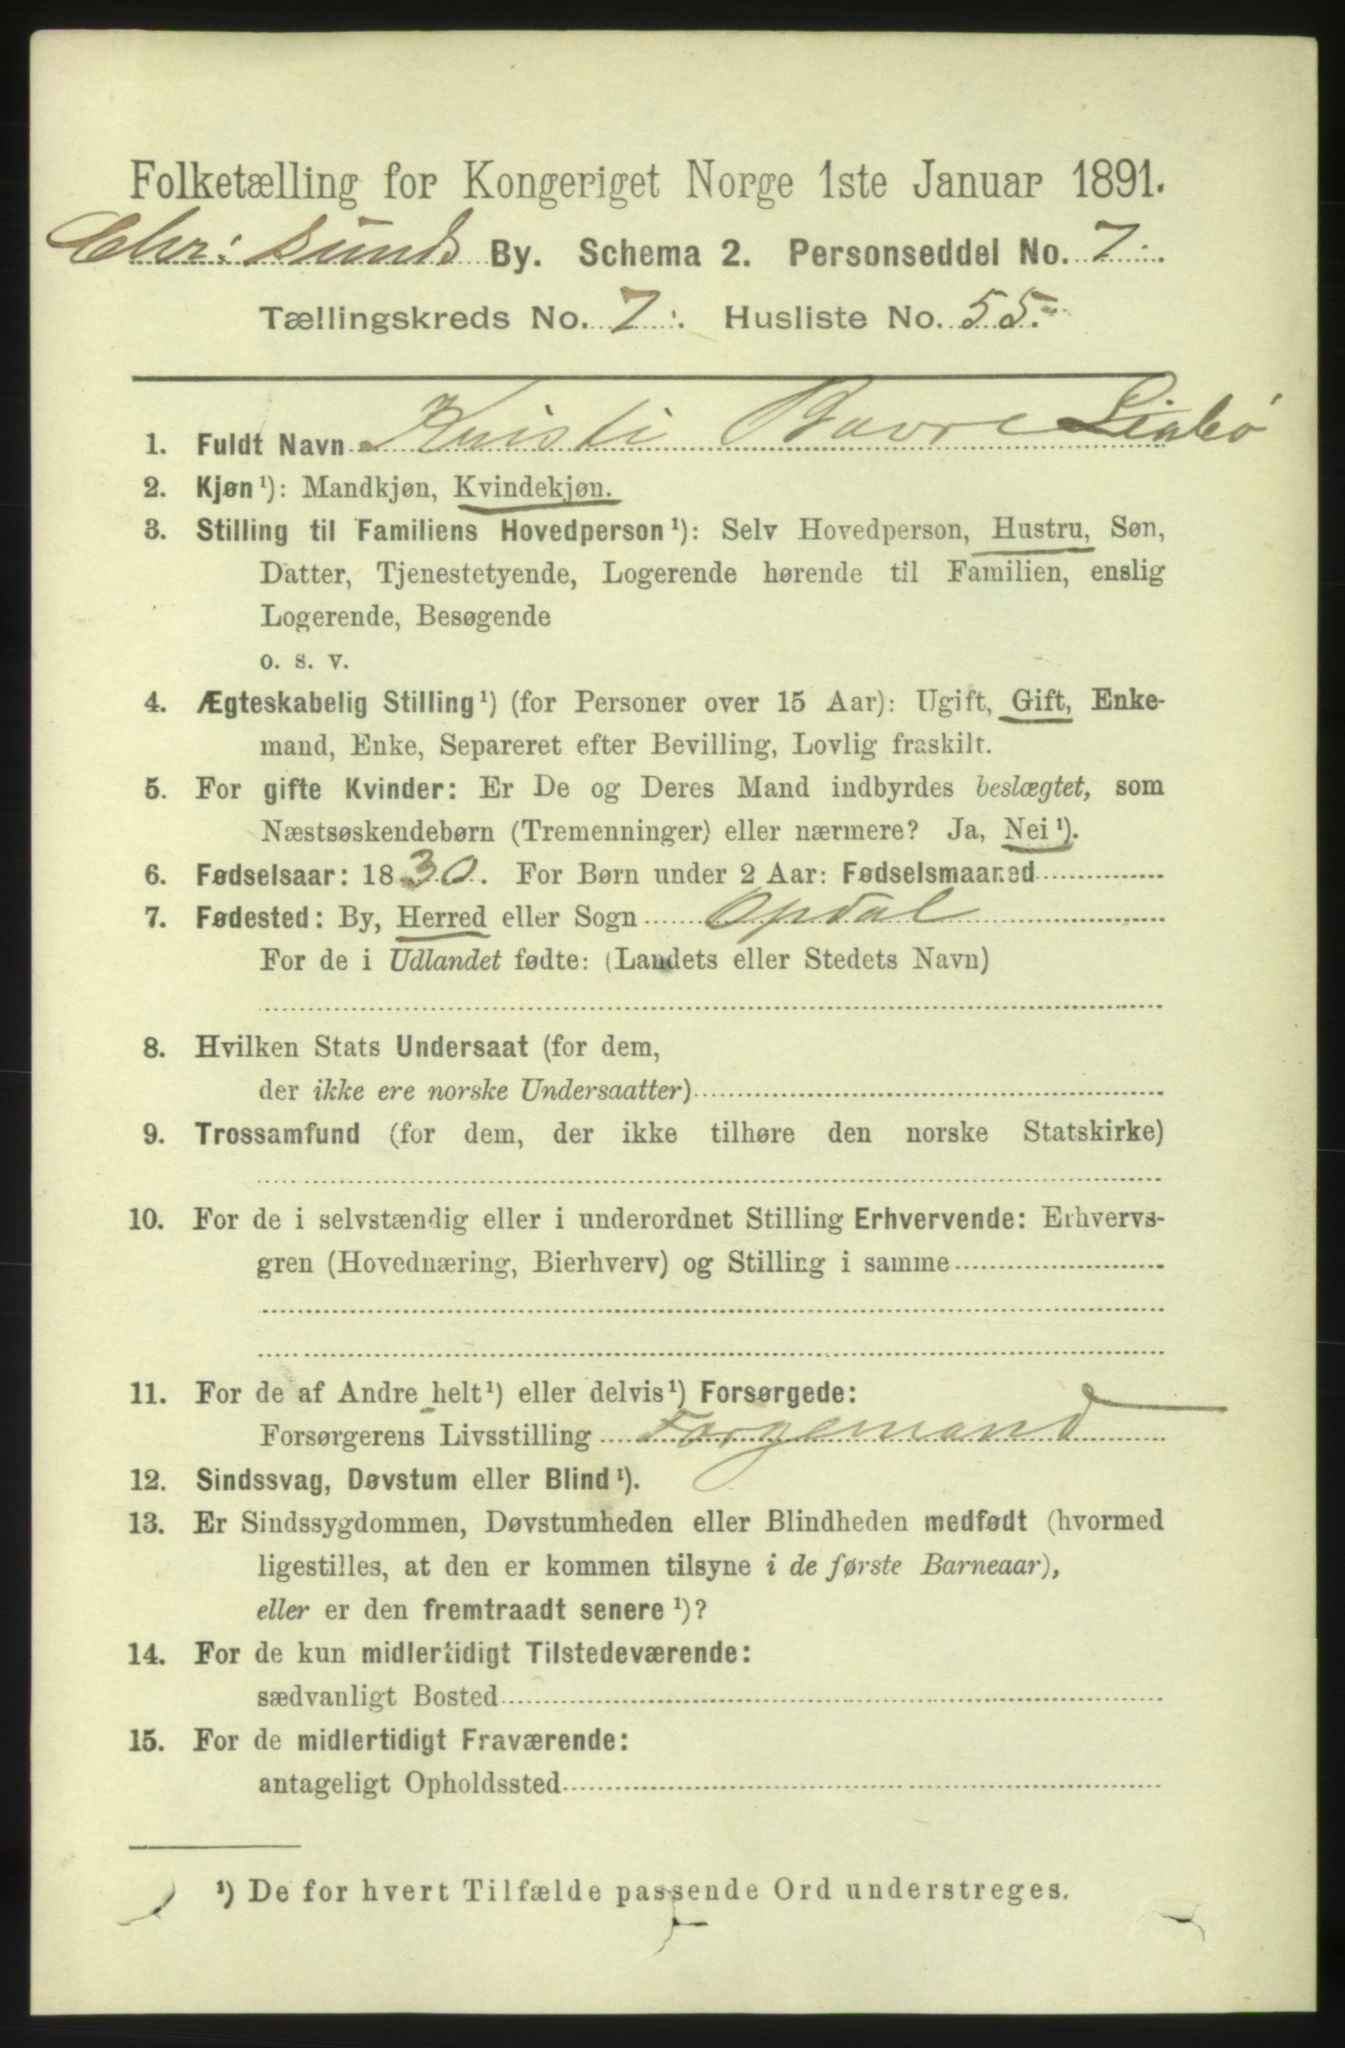 Folketælling for Kongeriget Norge 1ste Januar 1891.
Chr: sunds By. Schema 2. Personseddel No. 7.
Tællingskreds No. 7. Husliste No. 55.
1. Fuldt Navn Kristi Bavre Liabø
2. Kjøn¹): Mandkjøn, Kvindekjøn.
3. Stilling til Familiens Hovedperson¹): Selv Hovedperson, Hustru, Søn,
Datter, Tjenestetyende, Logerende hørende til Familien, enslig
Logerende, Besøgende
o. s. v.
4. Ægteskabelig Stilling¹) (for Personer over 15 Aar): Ugift, Gift, Enke-
mand, Enke, Separeret efter Bevilling, Lovlig fraskilt.
5. For gifte Kvinder: Er De og Deres Mand indbyrdes beslægtet, som
Næstsøskendebørn (Tremenninger) eller nærmere? Ja, Nei¹).
6. Fødselsaar: 1830. For Børn under 2 Aar: Fødselsmaaned
7. Fødested: By, Herred eller Sogn Opdal
For de i Udlandet fødte: (Landets eller Stedets Navn)
8. Hvilken Stats Undersaat (for dem,
der ikke ere norske Undersaatter)
9. Trossamfund (for dem, der ikke tilhøre den norske Statskirke)
10. For de i selvstændig eller i underordnet Stilling Erhvervende: Erhvervs-
gren (Hovednæring, Bierhverv) og Stilling i samme
11. For de af Andre helt¹) eller delvis¹) Forsørgede:
Forsørgerens Livsstilling Forgemand
12. Sindssvag, Døvstum eller Blind¹).
13. Er Sindssygdommen, Døvstumheden eller Blindheden medfødt (hvormed
ligestilles, at den er kommen tilsyne i de første Barneaar),
eller er den fremtraadt senere¹)?
14. For de kun midlertidigt Tilstedeværende:
sædvanligt Bosted
15. For de midlertidigt Fraværende:
antageligt Opholdssted
¹) De for hvert Tilfælde passende Ord understreges.